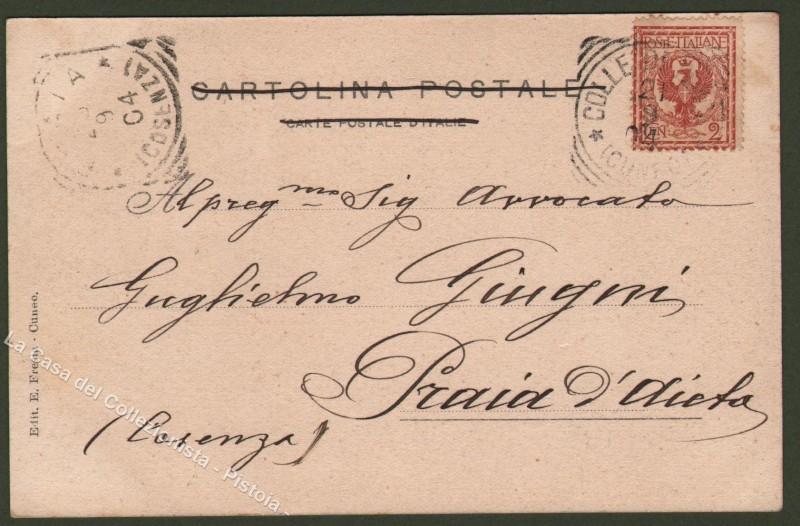 CARTOLINA POSTALE
CARTE POSTALE D'ITALIE
POSTE ITALIANE
CEN 2
* COLLE
(CUNEO)
04
(COSENZA)
04
Al preg mo Sig Avvocato
Guglielmo Giugni
Praia d'Aieta
(Cosenza)
Edit. E. Freddi - Cuneo.
La Casa del Collezionista - Pistoia